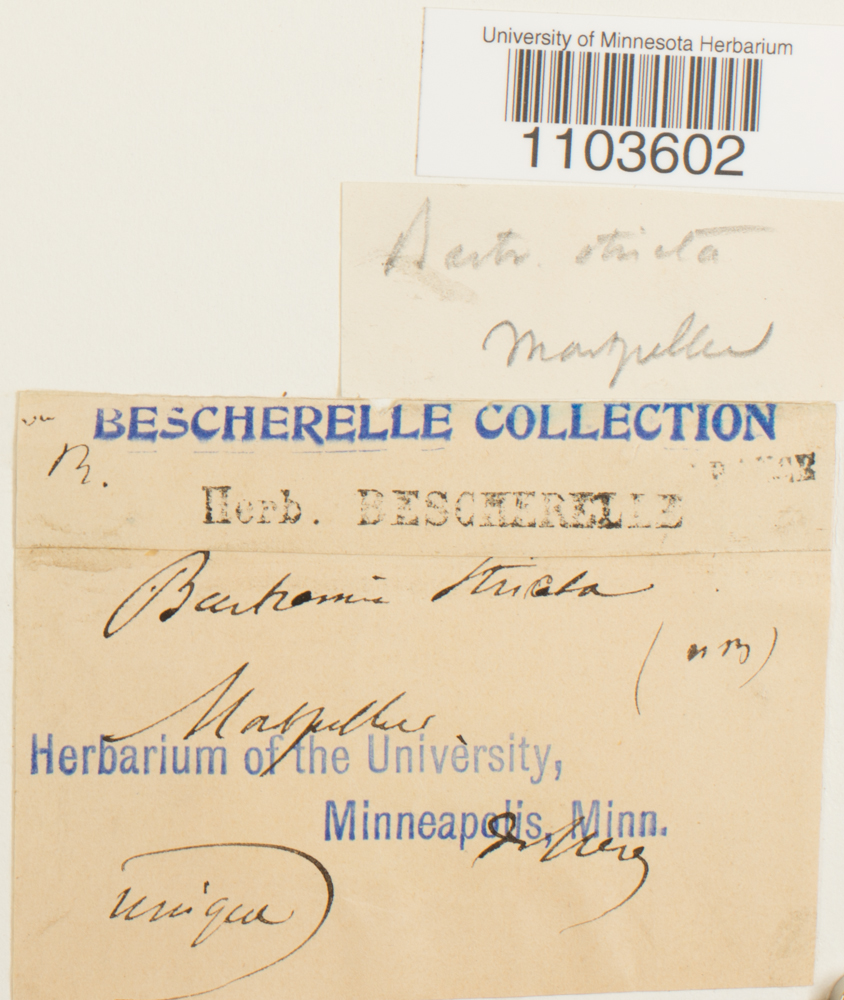 University of Minnesota Herbarium
1103602
Bartr. stricta
Montpellier
BESCHERELLE COLLECTION
B.
FRANCE
Herb. BESCHERELLE
Bartramia stricta
Montpellier
Herbarium of the University,
Minneapolis, Minn.
unique